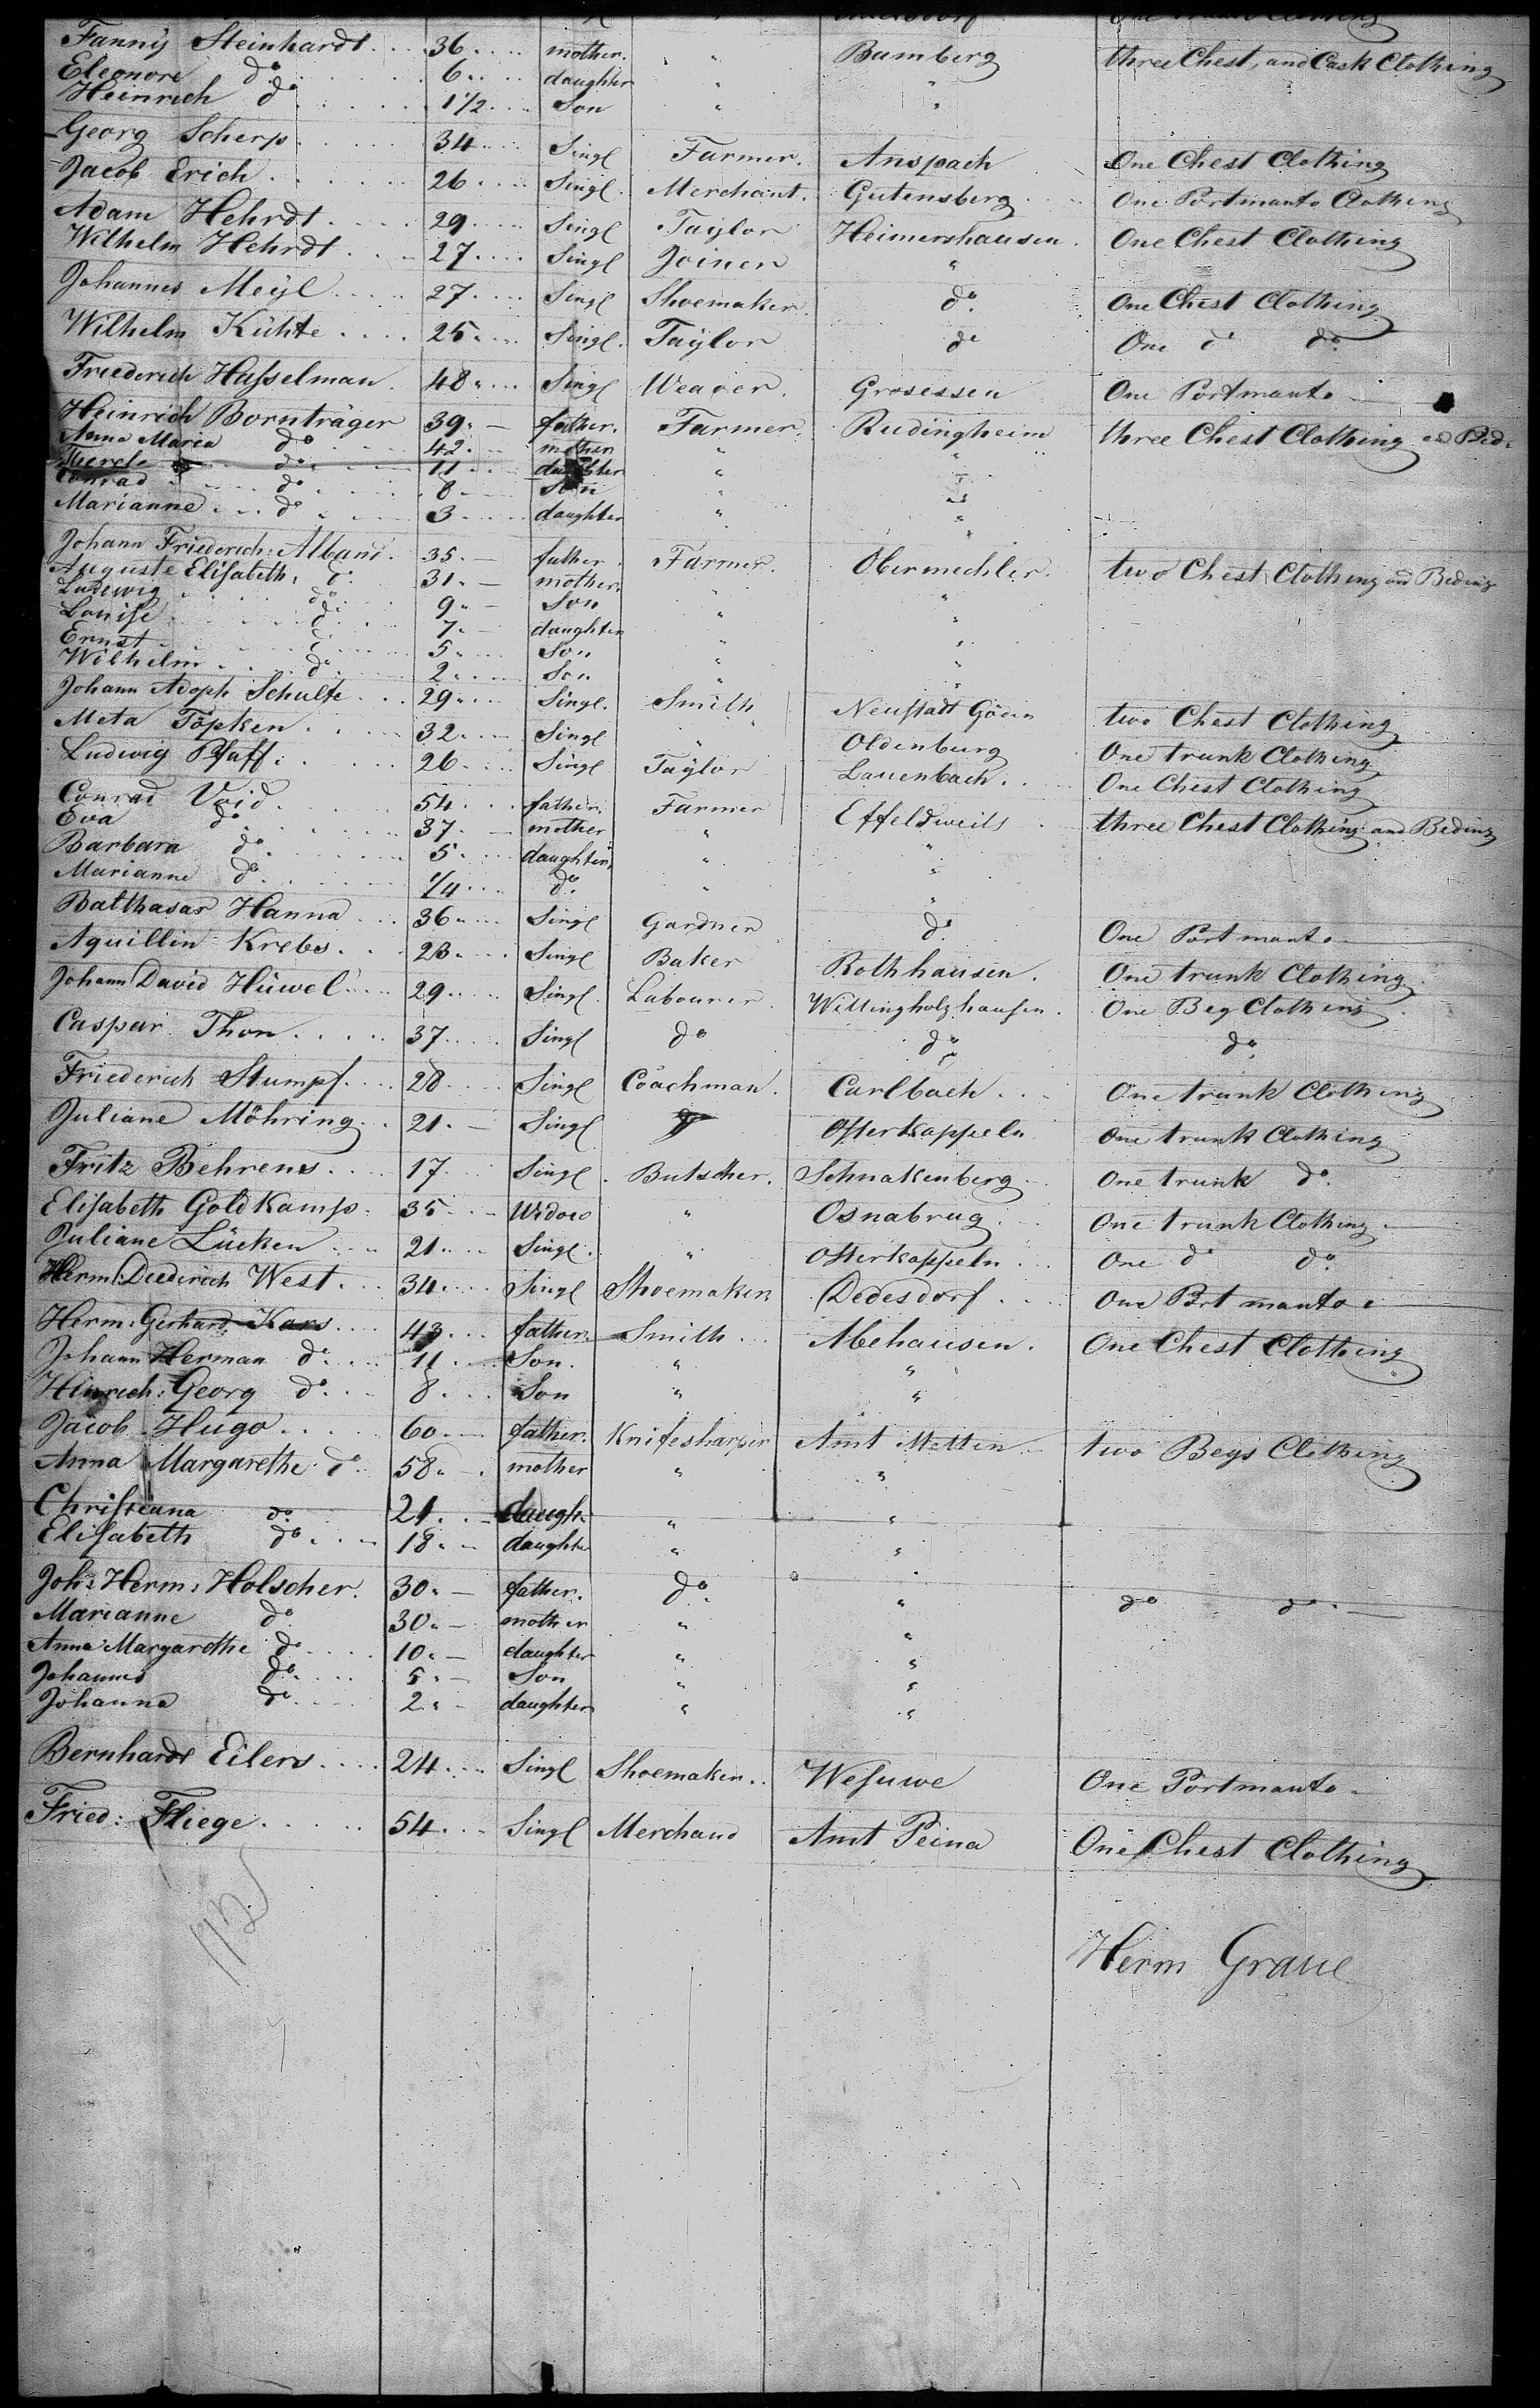 Fanny Steinhardt 36 mother " Bamberg three Chest, and Cask Clothing
Eleonore do 6 daughter "
Heinrich do 1 1/2 Son " "
Georg Scherp 34 Singl Farmer. Anspach One Chest Clothing
Jacob Erich 26 Singl. Merchant. Gutensberg One Portmanto Clothing
Adam Hehrdt 29 Singl Taylor Heimershausen One Chest Clothing
Wilhelm Hehrdt 27 Singl Joiner "
Johannes Meyl 27 Singl Shoemaker do One Chest Clothing
Wilhelm Kühte 25 Singl. Taylor do One do do
Friederich Hasselman 48 Singl Weaver. Grosessen One Portmanto
Heinrich Bornträger 39 father. Farmer. Rudingheim three Chest Clothing and Bed.
Anna Maria do 42 mother " "
do 11 daughter "
Conrad do 8 Son " "
Marianne do 3 daughter " "
Johann Friederich Alband. 35 father. Farmer. Obermehler. two Chest Clothing and Beding
Auguste Elisabeth, do 31 mother. " "
Ludewig do 9 Son " "
Louise do 7 daughter "
Ernst do 5 Son " "
Wilhelm do 2 Son " "
Johann Adoph Schulte 29 Singl. Smith Neustadt Göden two Chest Clothing
Meta Töpken 32 Singl " Oldenburg One trunk Clothing
Ludwig Pfaff 26 Singl Taylor Lauenbach One Chest Clothing
Conrad Void 54 father. Farmer Effeldweils three Chest Clothing and Beding
Eva do 37 mother " "
Barbara do 5 daughter, " "
Marianne do 1/4 do " "
Balthasar Hanna 36 Singl Gardner do One Portmanto
Aquillin Krebs 23 Singl Baker Rothhausen. One trunk Clothing
Johann David Hüwel 29 Singl. Labourer. Willingholzhausen. One Beg Clothing
Caspar Thon 37 Singl do do do
Friederich Stumpf 28 Singl Coachman. Carlbach One trunk Clothing
Juliane Möhring 21 Singl Osterkappeln One trunk Clothing
Fritz Behrens 17 Singl. Butscher. Schnakenberg One trunk do
Elisabeth Goldkamp. 35 Widow " Osnabrug One trunk Clothing
Juliane Lücken 21 Singl. " Osterkappeln One do do
Herm: Diederich West 34 Singl Shoemaker Dedesdorf One Portmanto
Herm: Gerhard Kars 43 father. Smith Abehausen. One Chest Clothing
Johann Herman do 11 Son. " "
Hinrich: Georg do 8 Son " "
Jacob Hugo 60 father. Knifesharper Amt Metten two Begs Clothing
Anna Margarethe do 58 mother " "
Christiana do 21 daugh. " "
Elisabeth do 18 daughter " "
Joh: Herm: Holscher. 30 father. do " do do
Marianne do 30 mother " "
Anna Margarethe do 10 daughter " "
Johannes do 5 Son " "
Johanna do 2 daughter " "
Bernhardt Eilers 24 Singl Shoemaker Wesuwe One Portmanto
Fried: Fliege 54 Singl Merchand Amt Peina One Chest Clothing
Herm Graue